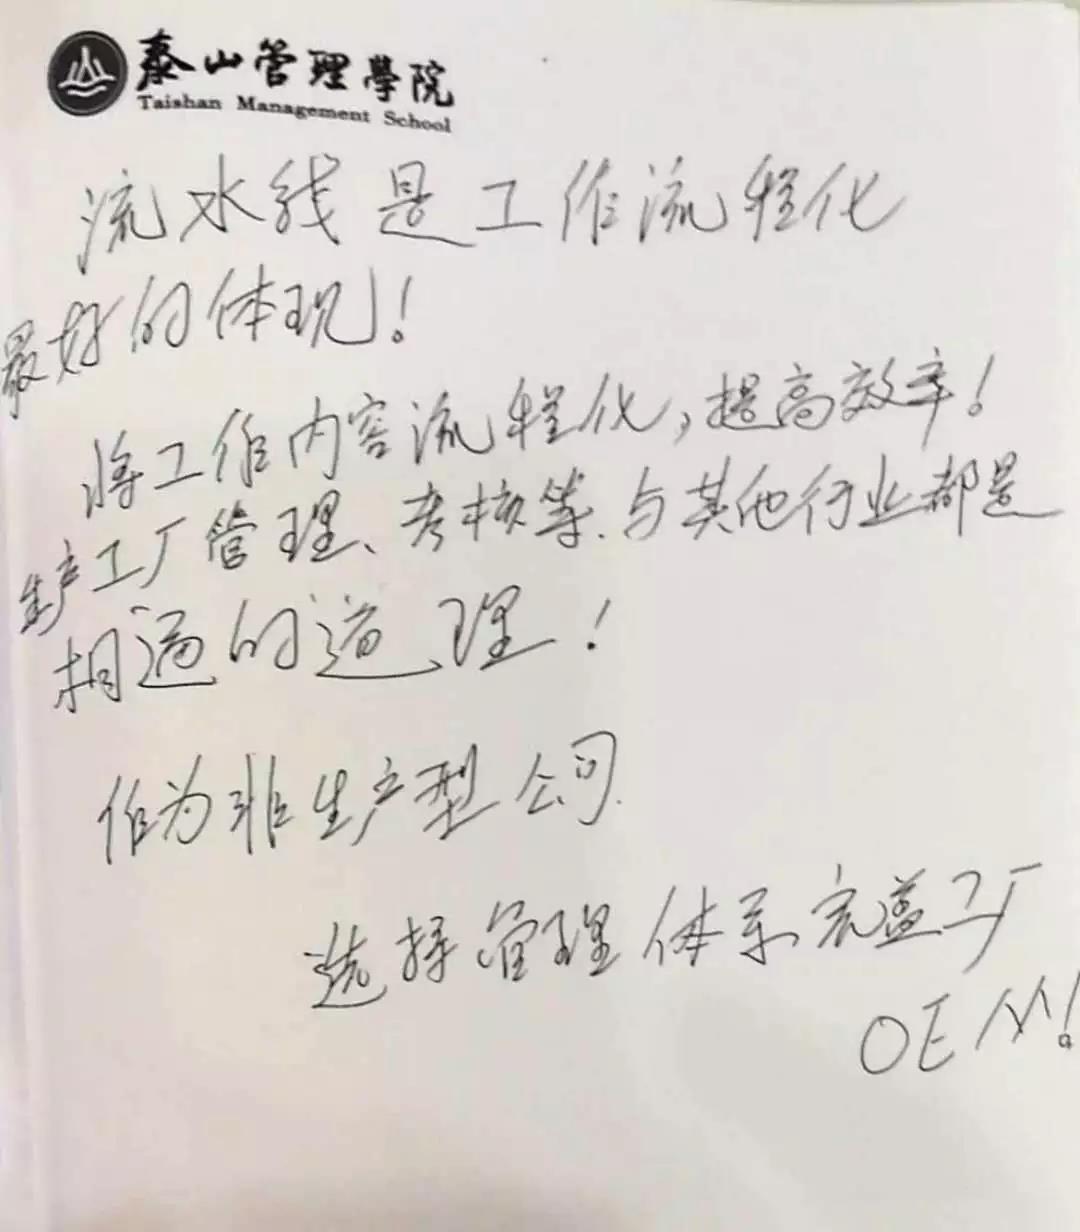 泰山管理學院
Taishan Management School
流水线是工作流程化
最好的体现!
将工作内容流程化,提高效率!
生产工厂管理、考核等.与其他行业都是
相通的道理!
作为非生产型公司.
选择管理体系完善工厂
OEM!